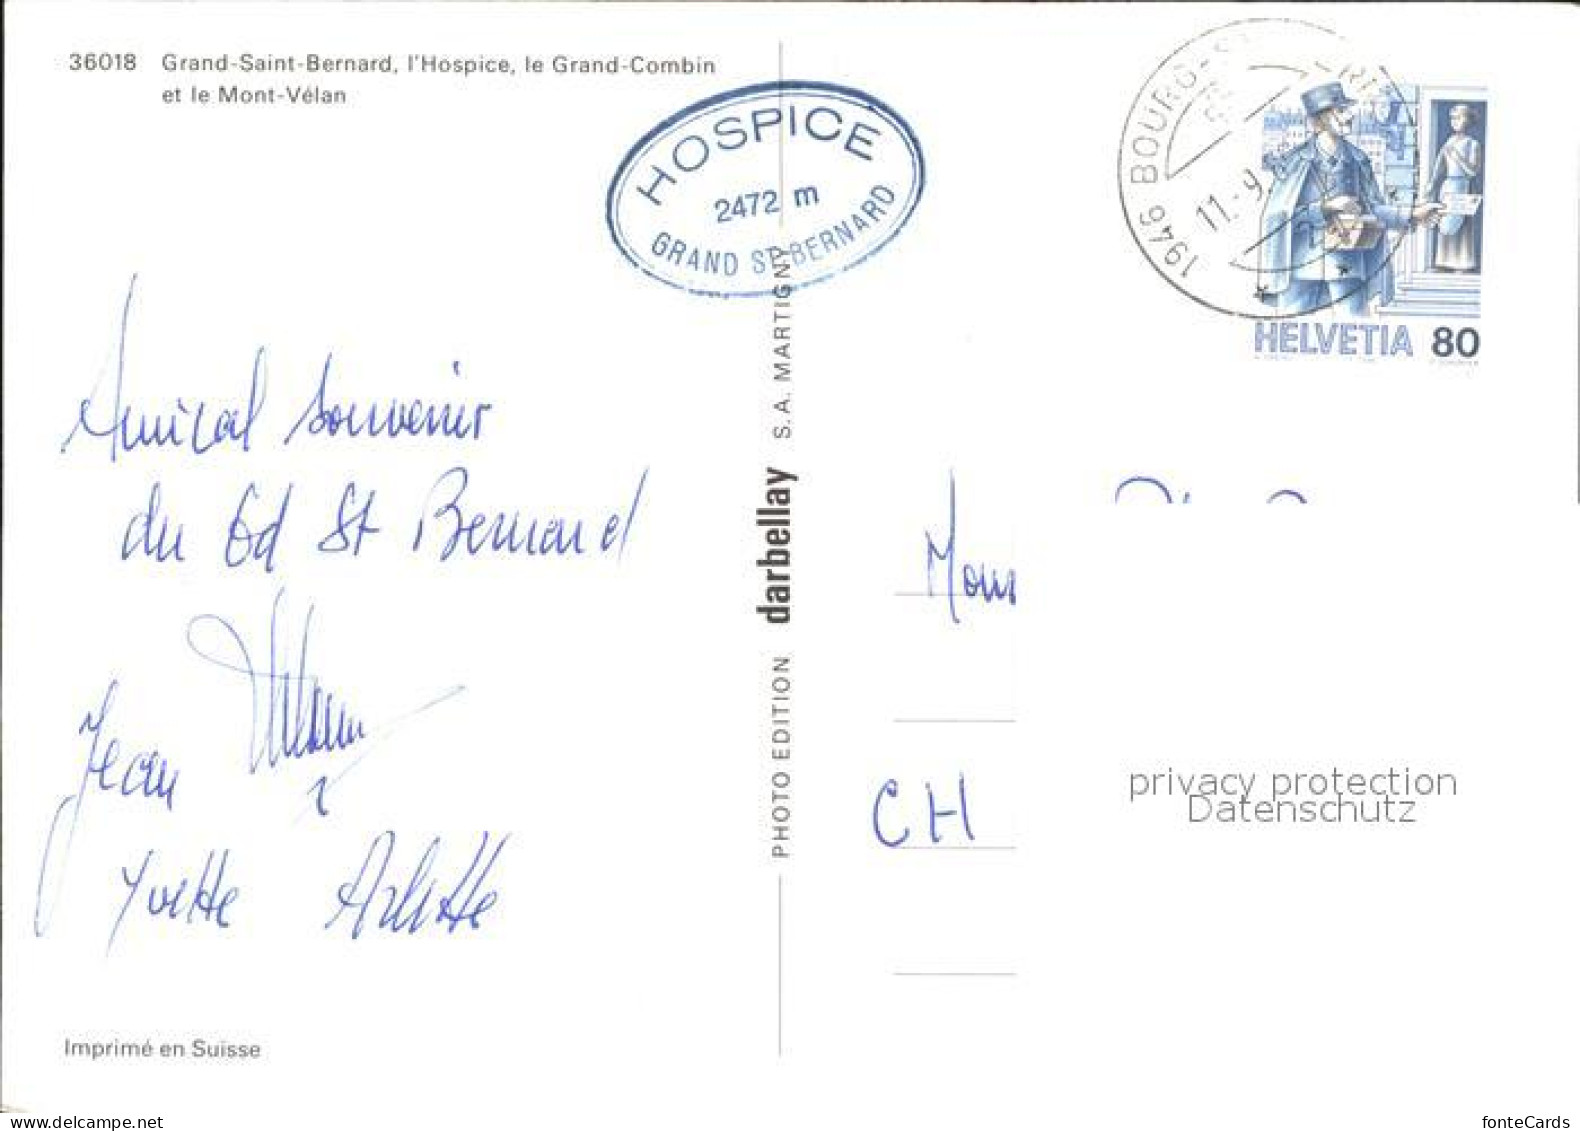 36018 Grand-Saint-Bernard, l'Hospice, le Grand-Combin
et le Mont-Vélan
HOSPICE
2472 m
GRAND ST BERNARD
1946 BOURG-ST
11.-9.
HELVETIA 80
Amical souvenir
du Gd St Bernard
Jean
Yvette Arlette
PHOTO EDITION darbellay S.A. MARTIGNY
CH
privacy protection
Datenschutz
Imprimé en Suisse
www.delcampe.net
fonteCards